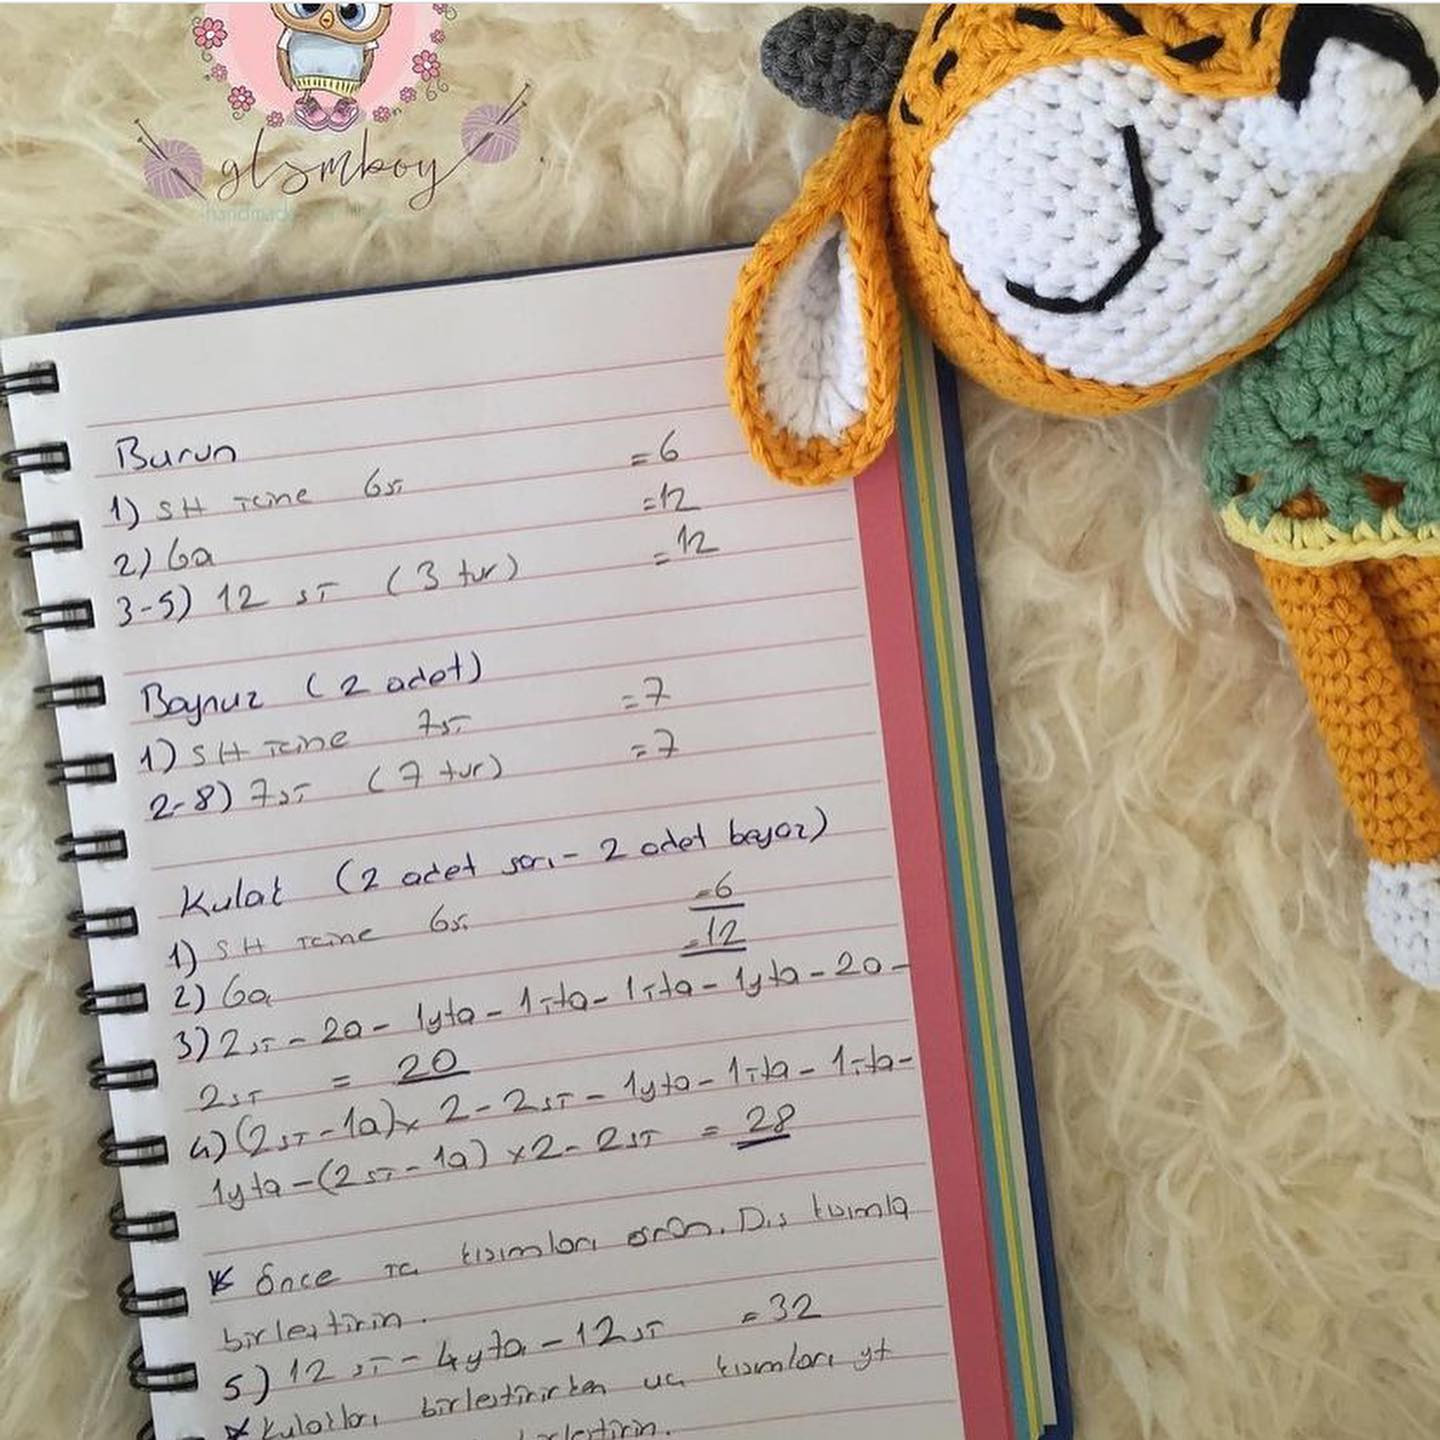 glsmboy
handmade
Burun
1) SH içine 6sı =6
2) 6a =12
3-5) 12 sı (3 tur) =12
Boynuz (2 adet)
1) SH içine 7sı =7
2-8) 7sı (7 tur) =7
Kulak (2 adet sarı - 2 adet beyaz)
1) SH içine 6sı =6
2) 6a =12
3) 2sı - 2a - 1yta - 1ita - 1ita - 1yta - 2a -
2sı = 20
4) (2sı - 1a) x 2 - 2sı - 1yta - 1ita - 1ita -
1yta - (2sı - 1a) x 2 - 2sı = 28
* Önce iç kısımları örün. Dış kısımla
birleştirin.
5) 12 sı - 4yta - 12sı = 32
* Kulakları birleştirirken uç kısımları yt
birleştirin.